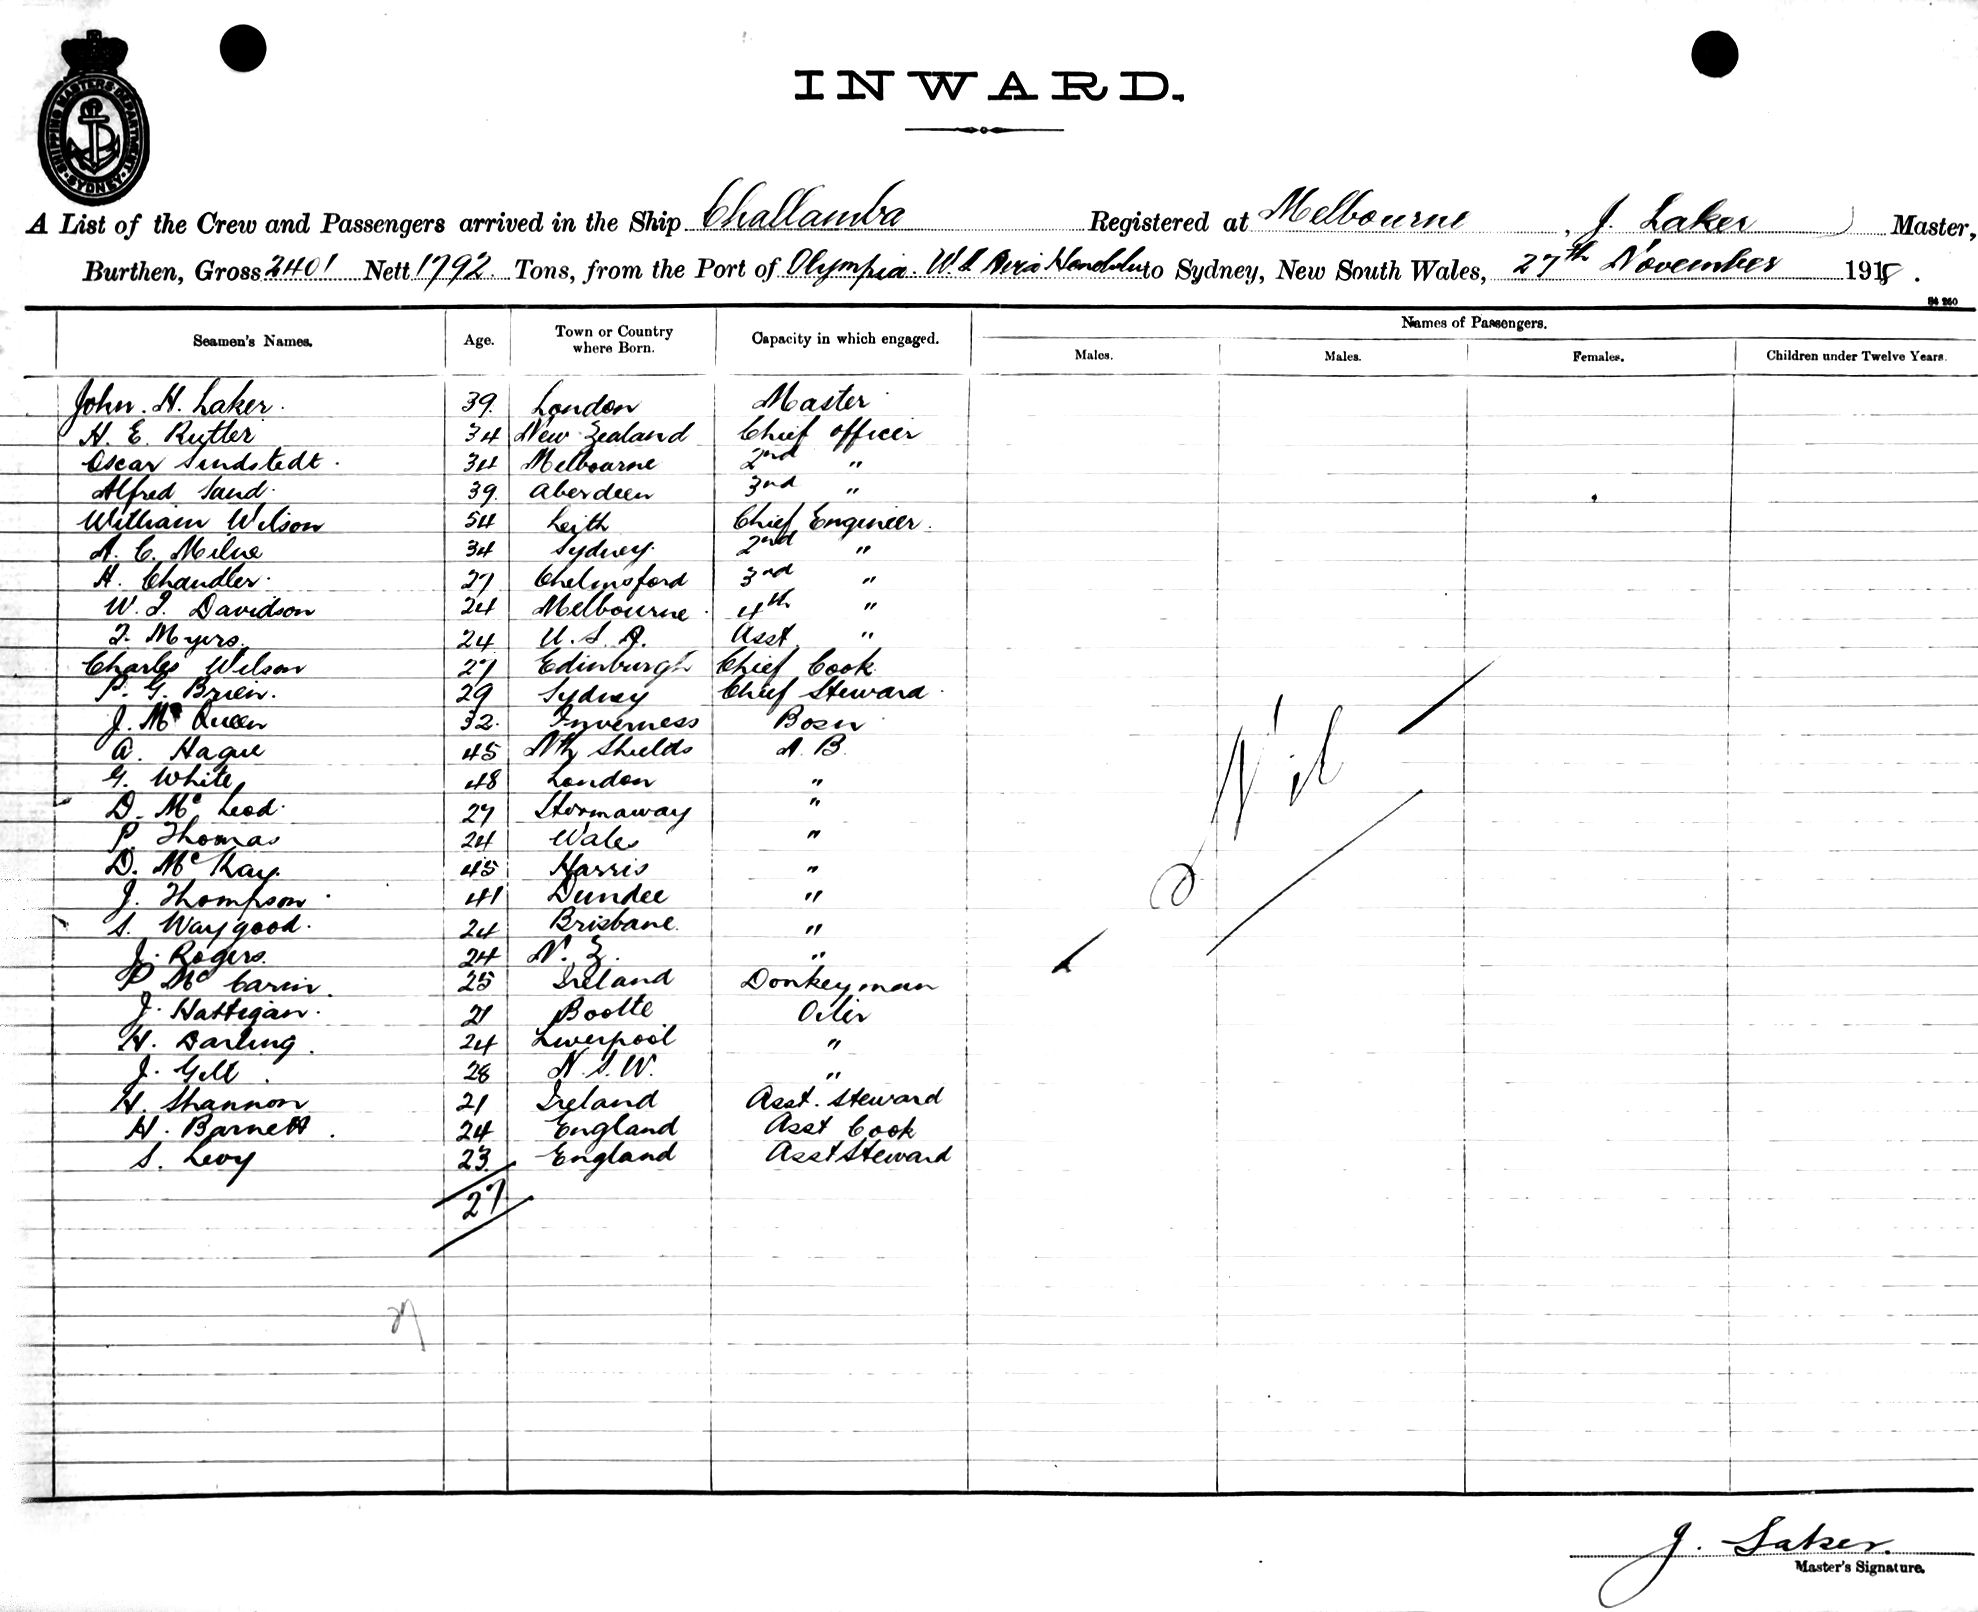 SHIPPING MASTERS DEPARTMENT SYDNEY
INWARD.
A List of the Crew and Passengers arrived in the Ship Challamba Registered at Melbourne, J. Laker Master,
Burthen, Gross 2401 Nett 1792 Tons, from the Port of Olympia. Honolulu to Sydney, New South Wales, 27th November 1918.
Seamen's Names. Age. Town or Country where Born. Capacity in which engaged. Names of Passengers.
Males. Males. Females. Children under Twelve Years.
John. H. Laker. 39. London Master
H. E. Rutter 34 New Zealand Chief Officer
Oscar Lindstedt. 34 Melbourne 2nd "
Alfred Sand. 39. Aberdeen 3rd "
William Wilson 54 Leith Chief Engineer.
A. C. Milne 34 Sydney. 2nd "
H. Chandler. 27 Chelmsford 3rd "
W. J. Davidson 24 Melbourne. 4th "
J. Myers. 24 U. S. A. Asst "
Charles Wilson 27 Edinburgh Chief Cook.
P. G. Brien. 29 Sydney Chief Steward.
J. Mc Queen 32. Inverness Bosn
A. Hague 45 Nth Shields A. B.
G. White 48 London "
D. Mc Leod. 27 Stornaway "
P. Thomas 24 Wales "
D. Mc Kay. 45 Harris "
J. Thompson. 41 Dundee "
S. Waygood. 24 Brisbane. "
J. Rogers. 24 N. Z. "
P. Mc 25 Ireland Donkeyman
J. Hattigan. 21 Bootle Oiler
H. Darling. 24 Liverpool "
J. Gell. 28 N. S. W. "
H. Shannon 21 Ireland Asst. Steward
H. Barnett. 24 England Asst Cook
S. Levy 23 England Asst Steward
27
Nil
27
J. Laker.
Master's Signature.